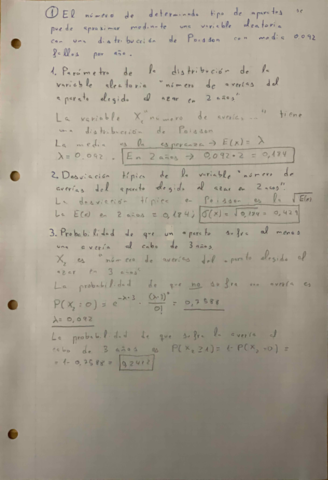 ① El número de determinado tipo de aparatos se
puede aproximar mediante una variable aleatoria
con una distribución de Poisson con media 0.092
fallos por año.
1. Parámetro de la distribución de la
variable aleatoria "número de averías del
aparato elegido al azar en 2 años"
La variable X "número de averías ..." tiene
una distribución de Poisson
La media es la esperanza → E(x) = λ
λ = 0.092. En 2 años → 0,092·2 = 0,184
2. Desviación típica de la variable "número de
averías del aparato elegido al azar en 2 años"
La desviación típica en Poisson es la √E(x)
La E(x) en 2 años = 0,184; σ(x) = √0,184 = 0,429
3. Probabilidad de que un aparato sufra al menos
una avería al cabo de 3 años
X₃ es "número de averías del aparato elegido al
azar en 3 años"
La probabilidad de que no sufra una avería es
P(X₃=0) = e^-λ·3 · (λ·3)⁰/0! = 0,7588
λ = 0,092
La probabilidad de que sufra la avería al
cabo de 3 años es P(X₃≥1) = 1-P(X₃=0) =
= 1-0,7588 = 0,2412